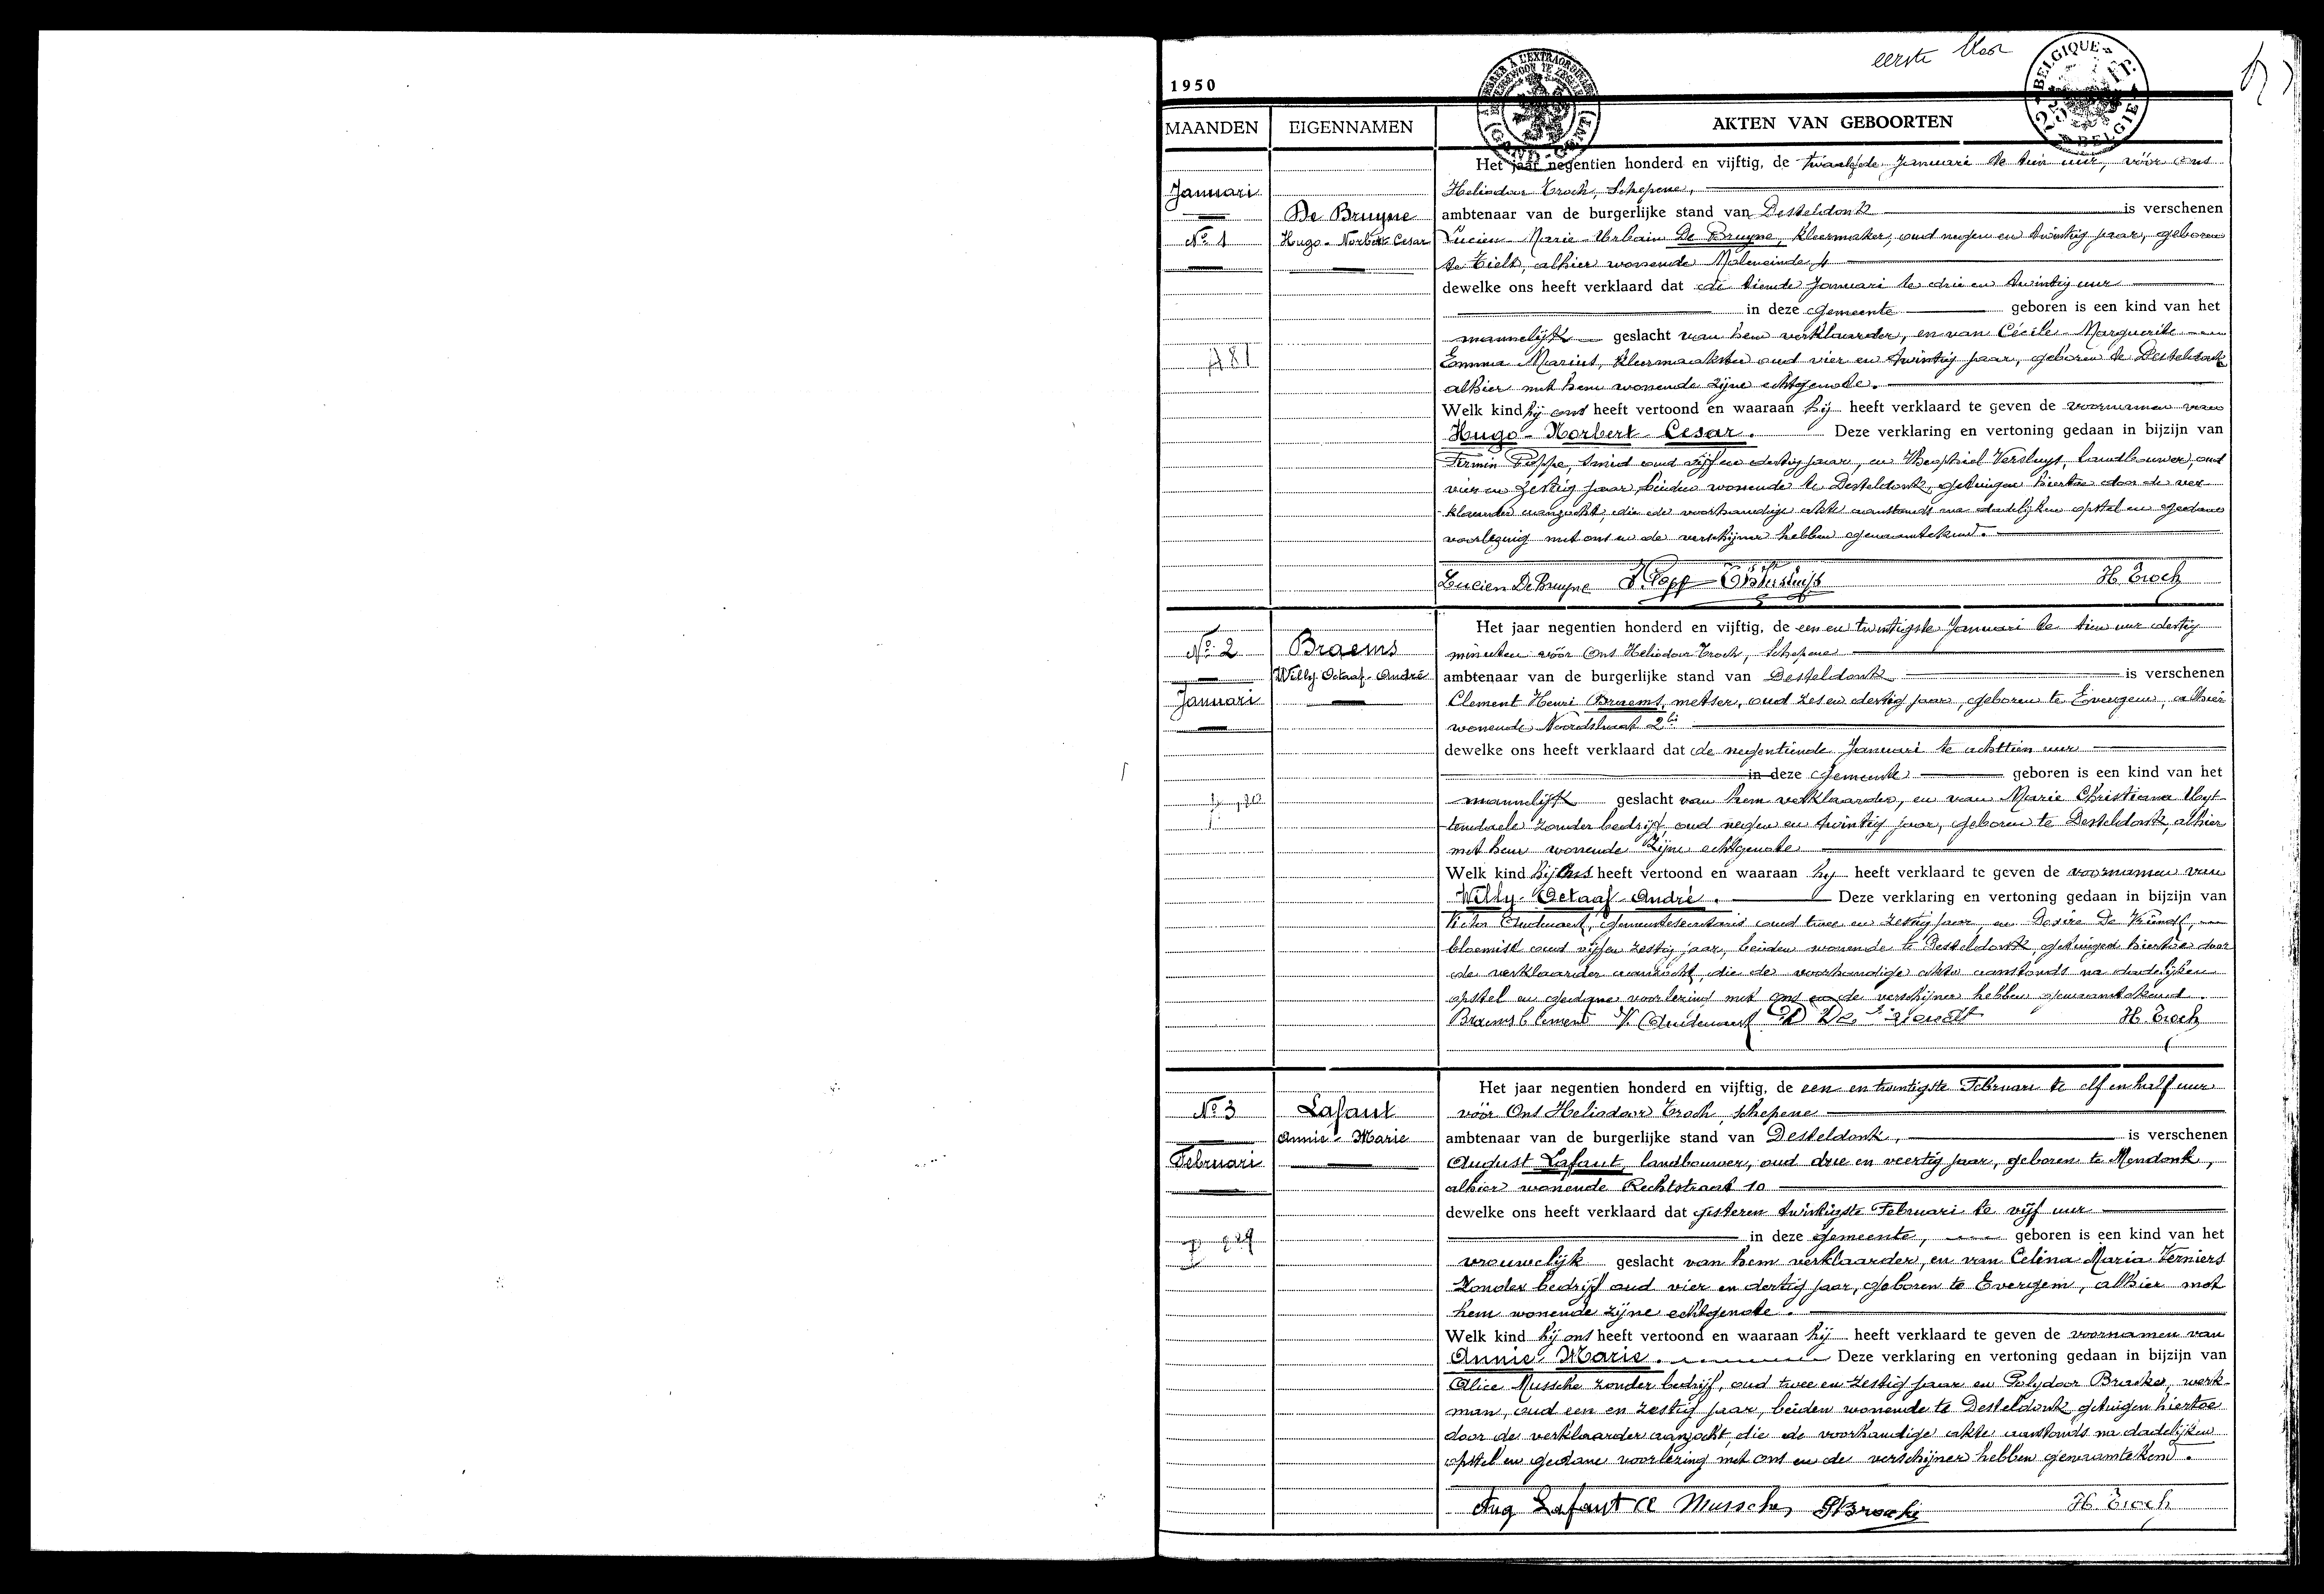 eerste blad
BELGIQUE
BELGIE
1950
MAANDEN
EIGENNAMEN
AKTEN VAN GEBOORTEN
Januari
No 1
De Bruyne
Hugo-Norbert-Cesar
Het jaar negentien honderd en vijftig, de twaalfde Januari te tien uur, vóór ons
Heliodoor Troch, Schepene,
ambtenaar van de burgerlijke stand van Desteldonk is verschenen
Lucien-Marie-Urbain De Bruyne, kleermaker, oud negen en twintig jaar, geboren
te Tielt, alhier wonende Moleneinde, 4
dewelke ons heeft verklaard dat de tiende Januari te drie en twintig uur
in deze gemeente geboren is een kind van het
mannelijk geslacht van hem verklaarder, en van Cécile Marguerite
Emma Marius, kleermaakster oud vier en twintig jaar, geboren te Desteldonk
alhier met hem wonende zijne echtgenote.
Welk kind hij ons heeft vertoond en waaraan hij heeft verklaard te geven de voornamen van
Hugo-Norbert-Cesar. Deze verklaring en vertoning gedaan in bijzijn van
Firmin Poppe, smid oud vijf en dertig jaar, en Theophiel Versluys, landbouwer, oud
vier en zestig jaar, beiden wonende te Desteldonk, getuigen hiertoe door de ver
klaarder aanzocht, die de voorhandige akte aanstonds na dadelijken opstel en gedane
voorlezing met ons en de verschijner hebben genaamtekend.
Lucien De Bruyne H. Troch
No 2
Januari
Braems
Willy-Octaaf-André
Het jaar negentien honderd en vijftig, de een en twintigste Januari te tien uur dertig
minuten vóór Ons Heliodoor Troch, Schepene
ambtenaar van de burgerlijke stand van Desteldonk is verschenen
Clement Henri Braems, metser, oud zes en dertig jaar, geboren te Evergem, alhier
wonende Noordstraat 2
dewelke ons heeft verklaard dat de negentiende Januari te achttien uur
in deze gemeente geboren is een kind van het
mannelijk geslacht van hem verklaarder, en van Marie Christiana Uyt-
tendaele zonder bedrijf, oud negen en twintig jaar, geboren te Desteldonk, alhier
met hem wonende zijne echtgenote
Welk kind hij Ons heeft vertoond en waaraan hij heeft verklaard te geven de voornamen van
Willy-Octaaf-André. Deze verklaring en vertoning gedaan in bijzijn van
gemeentesecretaris oud twee en zestig jaar, en Desire De
bloemist oud vijf en zestig jaar, beiden wonende te Desteldonk, getuigen hiertoe door
de verklaarder aanzocht, die de voorhandige akte aanstonds na dadelijken
opstel en gedane voorlezing met ons en de verschijner hebben genaamtekend.
Braems Clement H. Troch
No 3
Februari
Lafaut
Annie-Marie
Het jaar negentien honderd en vijftig, de een en twintigste Februari te elf en half uur
vóór Ons Heliodoor Troch, schepene
ambtenaar van de burgerlijke stand van Desteldonk, is verschenen
August Lafaut, landbouwer, oud drie en veertig jaar, geboren te Mendonk,
alhier wonende Rechtstraat 10
dewelke ons heeft verklaard dat gisteren twintigste Februari te vijf uur
in deze gemeente, geboren is een kind van het
vrouwelijk geslacht van hem verklaarder, en van Celina Maria Verniers
zonder bedrijf oud vier en dertig jaar, geboren te Evergem, alhier met
hem wonende zijne echtgenote.
Welk kind hij ons heeft vertoond en waaraan hij heeft verklaard te geven de voornamen van
Annie-Marie. Deze verklaring en vertoning gedaan in bijzijn van
Alice Mussche zonder bedrijf, oud twee en zestig jaar en Polydoor werk-
man, oud een en zestig jaar, beiden wonende te Desteldonk, getuigen hiertoe
door de verklaarder aanzocht, die de voorhandige akte aanstonds na dadelijken
opstel en gedane voorlezing met ons en de verschijner hebben genaamtekend.
Aug Lafaut A Mussche H. Troch